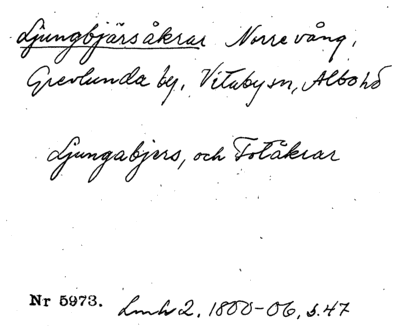 Ljungbjärsåkrar Norrevång,
Grevlunda by, Vitaby sn, Albo hd
Ljungabjers, och Totåkrar
Nr 5973. Lmh 2, 1800-06, s. 47